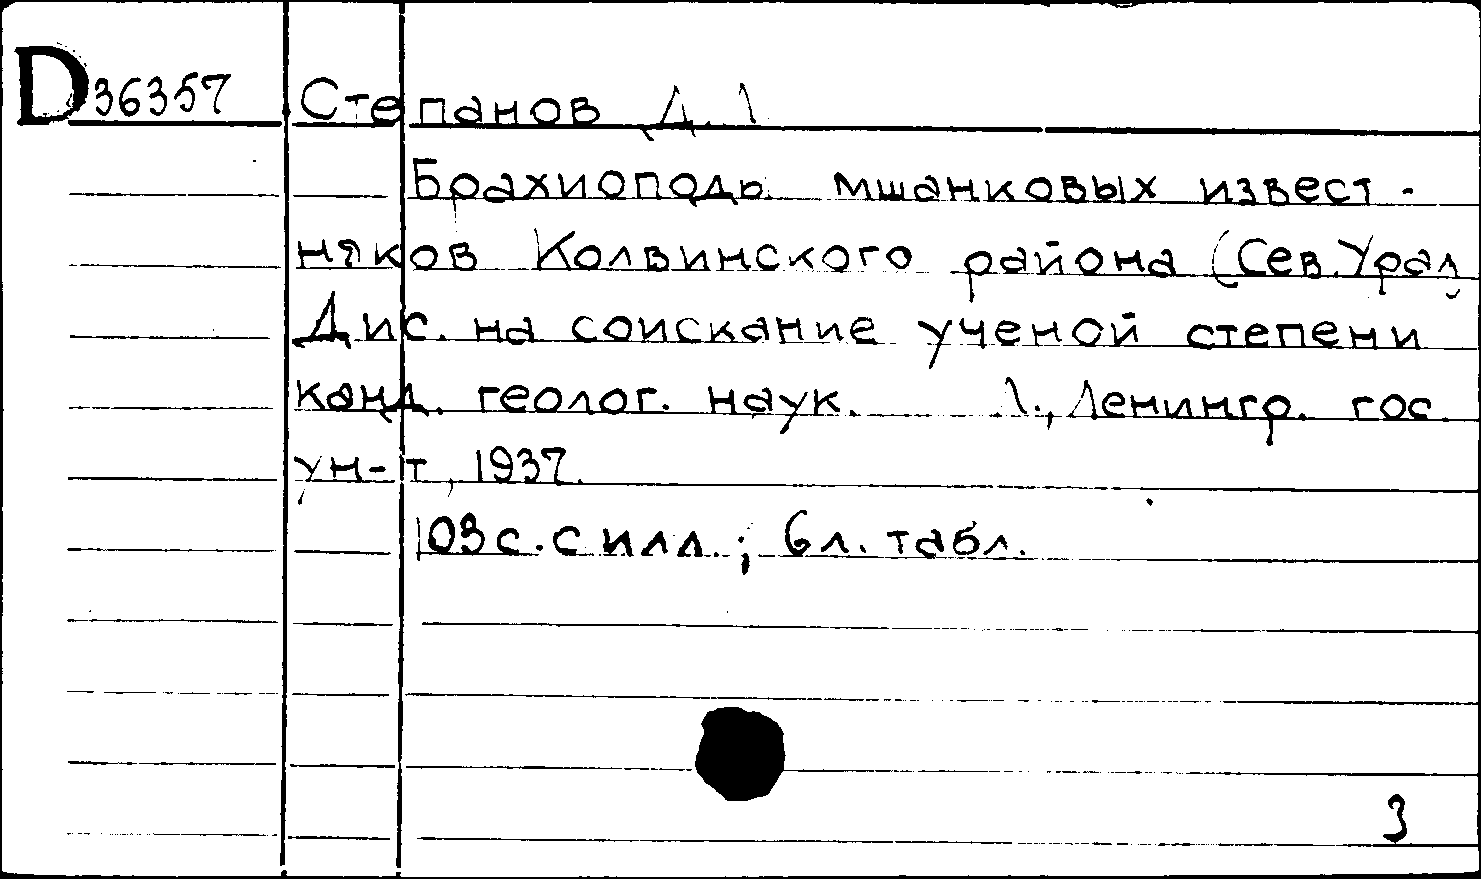 D36357 Степанов Д. Л
Брахиоподы мшанковых извест-
няков Колвинского района (Сев. Урал)
Дис. на соискание ученой степени
канд. геолог. наук. Л., Ленингр. гос.
ун-т, 1937.
103 с. с илл.; 6 л. табл.
3